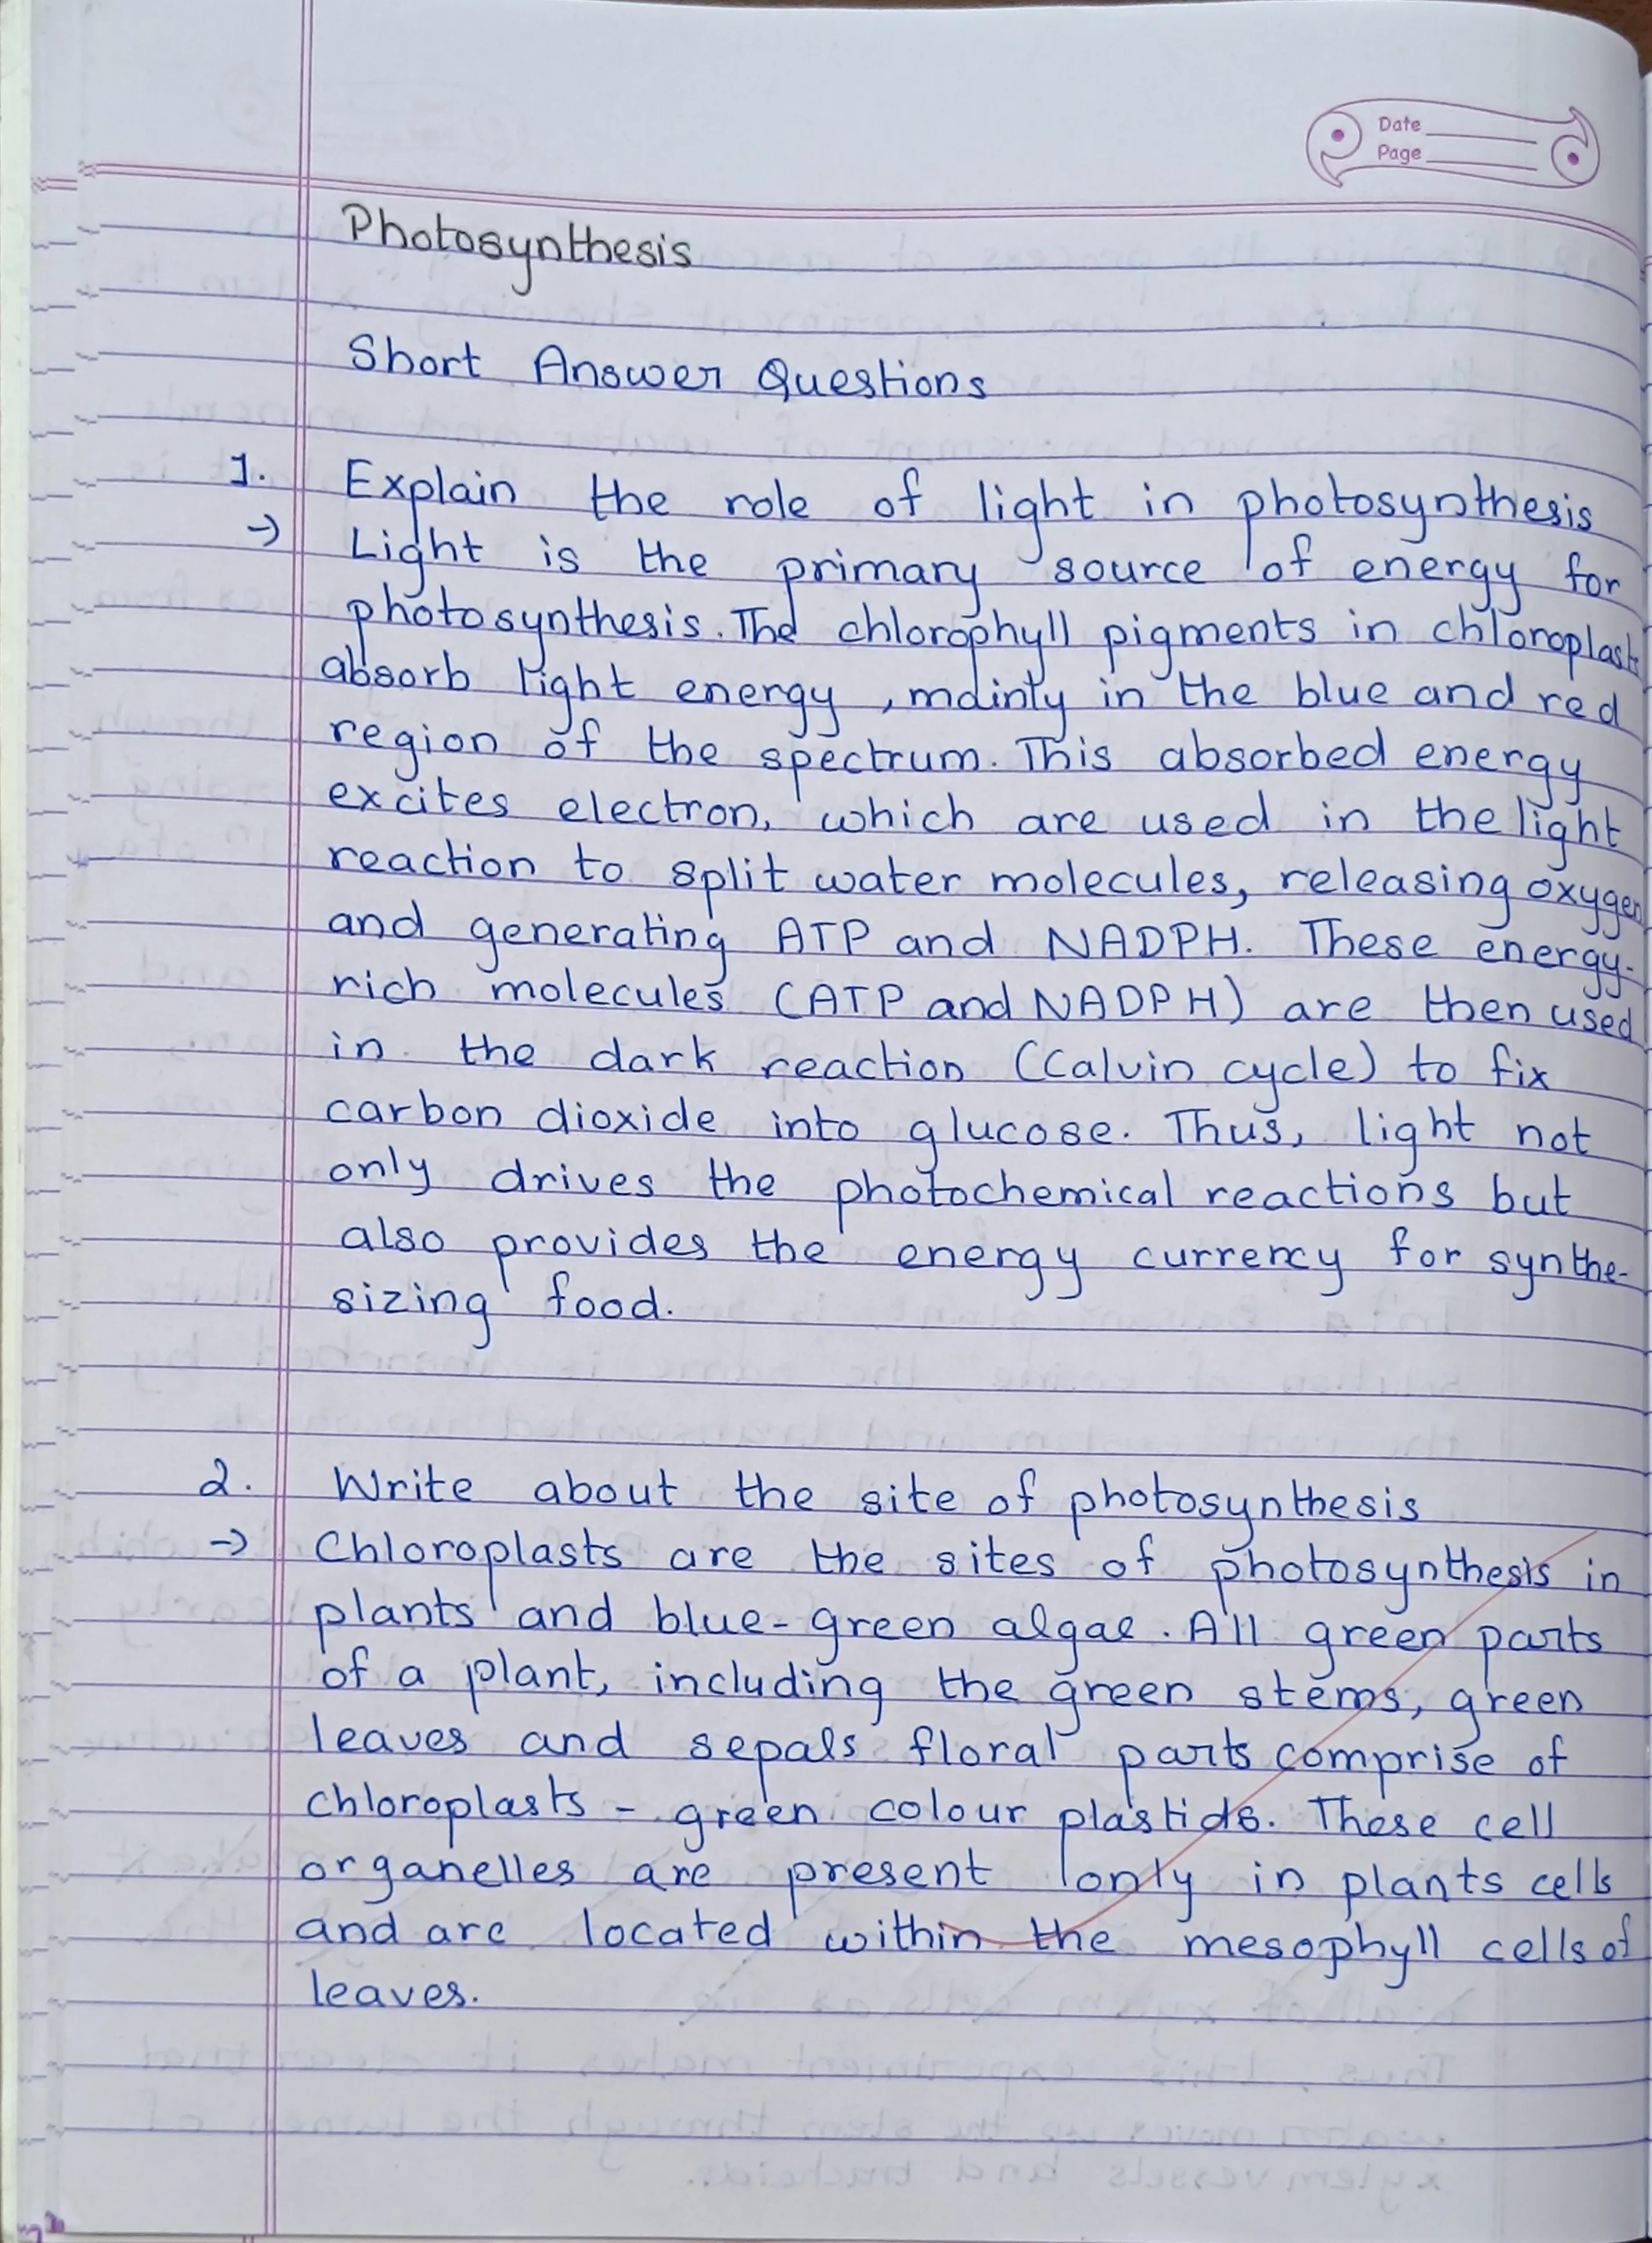 Date
Page
Photosynthesis
Short Answer Questions
1. Explain the role of light in photosynthesis
→ Light is the primary source of energy for
photosynthesis. The chlorophyll pigments in chloroplast
absorb light energy, mainly in the blue and red
region of the spectrum. This absorbed energy
excites electron, which are used in the light
reaction to split water molecules, releasing oxygen
and generating ATP and NADPH. These energy-
rich molecules (ATP and NADPH) are then used
in the dark reaction (Calvin cycle) to fix
carbon dioxide into glucose. Thus, light not
only drives the photochemical reactions but
also provides the energy currency for synthe-
sizing food.
2. Write about the site of photosynthesis
→ Chloroplasts are the sites of photosynthesis in
plants and blue-green algae. All green parts
of a plant, including the green stems, green
leaves and sepals floral parts comprise of
chloroplasts - green colour plastids. These cell
organelles are present only in plants cells
and are located within the mesophyll cells of
leaves.